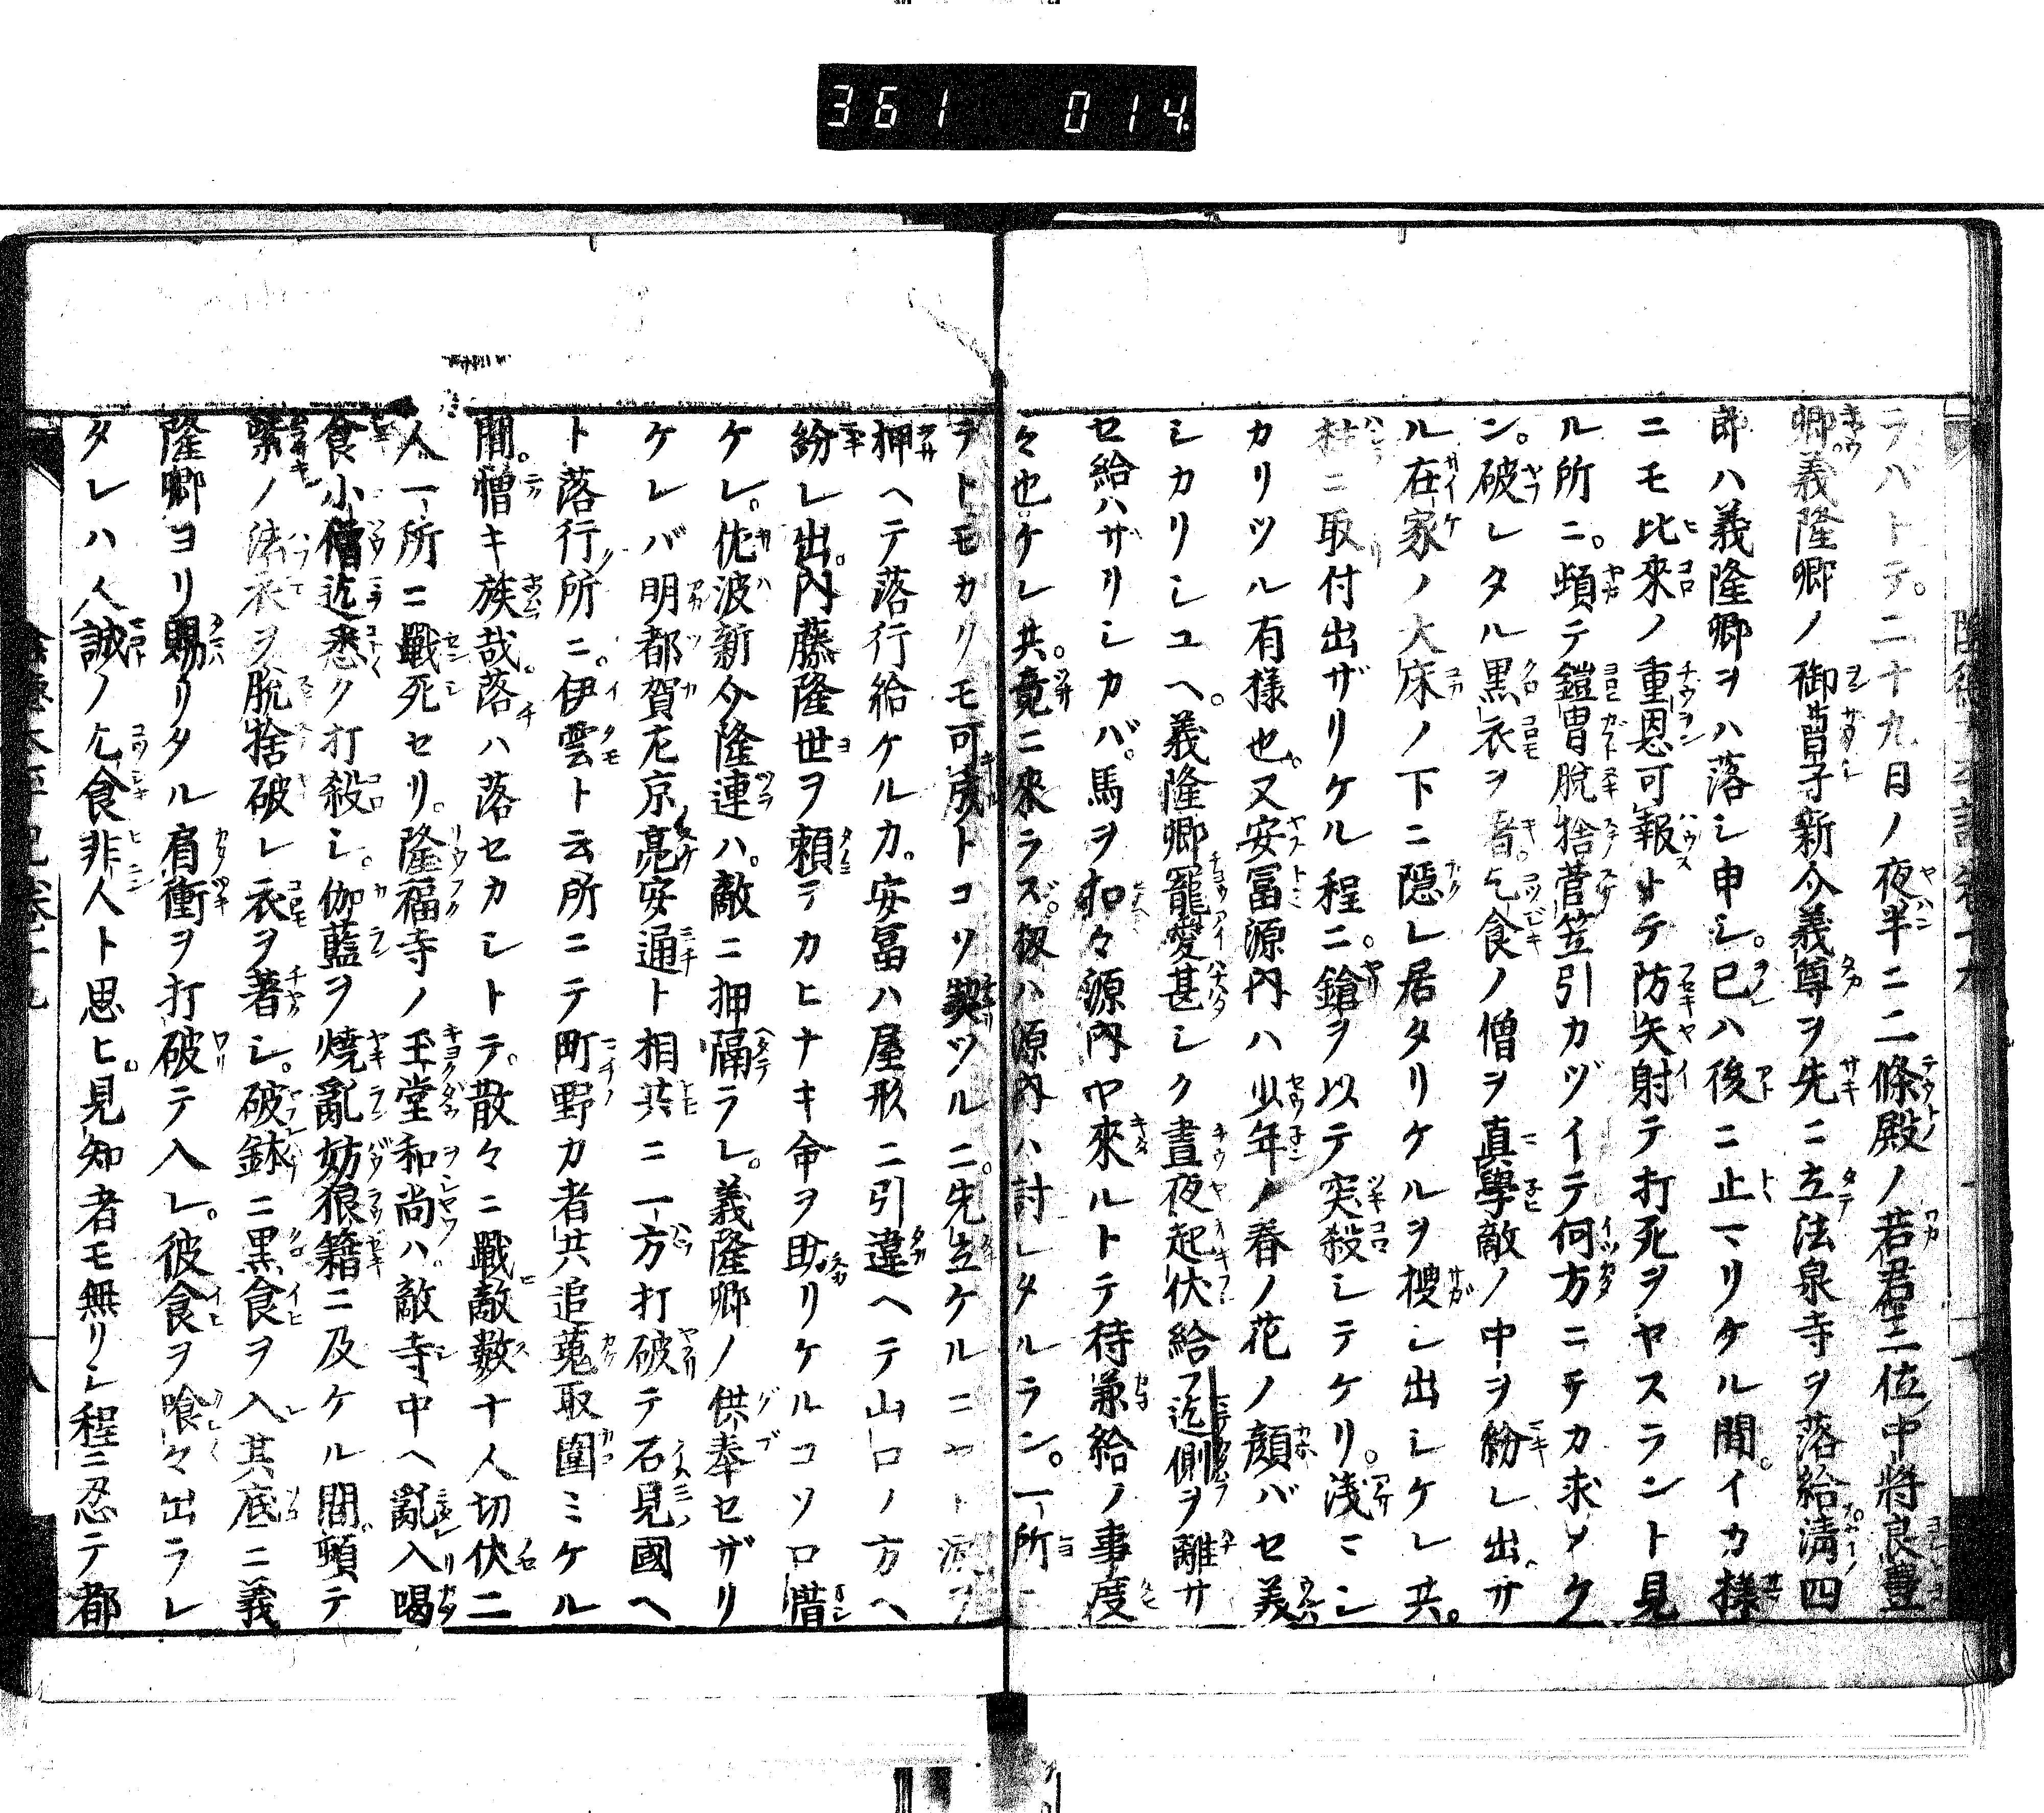 361 014
ラバトテ。二十九日ノ夜半ニ二條殿ノ若君三位中將良豊
卿義隆卿ノ御曽子新介義尊ヲ先ニ立法泉寺ヲ落給淸四
郎ハ義隆卿ヲハ落シ申シ。已ハ後ニ止マリタル間。イカ樣
ニモ比來ノ重恩可報トテ防矢射テ打死ヲヤスラント見
ル所ニ。頓テ鎧冑脱捨菅笠引カヅイテ何方ニテカ求メケ
ン。破レタル黒衣ヲ着乞食ノ僧ヲ真學敵ノ中ヲ紛レ出。サ
ル在家ノ大床ノ下ニ隱レ居タリケルヲ搜シ出シケレ共。
柱ニ取付出ザリケル程ニ。鎗ヲ以テ突殺シテケリ。淺ニシ
カリツル有樣也。又安冨源内ハ少年ノ春ノ花ノ顔バセ義
シカリシユヘ。義隆卿寵愛甚シク晝夜起伏給フ迄側ヲ離サ
セ給ハザリシカバ。馬ヲ扣々源内ヤ來ルトテ待兼給ノ事度
々也ケレ共。竟ニ來ラズ。扨ハ源内ハ討レタルラン。一所ニ
テトモカクモ可成トコソ契ツルニ。先立ケルニヤト涙ヲ
押ヘテ落行給ケルカ。安冨ハ屋形ニ引違ヘテ山口ノ方ヘ
紛レ出。内藤隆世ヲ頼テカヒナキ命ヲ助リケルコソ口惜
ケレ。佗波新介隆連ハ。敵ニ押隔ラレ。義隆卿ノ供奉セザリ
ケレバ明都賀左京亮安通ト相共ニ一方打破テ石見國ヘ
ト落行所ニ。伊雲ト云所ニテ町野カ者共追蒐取圍ミケル
間。憎キ族哉。落ハ落セカシトテ。散々ニ戰敵数十人切伏二
人一所ニ戰死セリ。隆福寺ノ玉堂和尚ハ。敵寺中ヘ亂入喝
食小僧迄悉ク打殺シ。伽藍ヲ燒亂妨狼籍ニ及ケル間。頓テ
紫ノ法衣ヲ脱捨破レ衣ヲ著シ。破鉢ニ黒食ヲ入其底ニ義
隆卿ヨリ賜リタル肩衝ヲ打破テ入レ。彼食ヲ喰々出ラレ
タレハ人誠ノ乞食非人ト思ヒ。見知者モ無リシ程ニ忍テ都